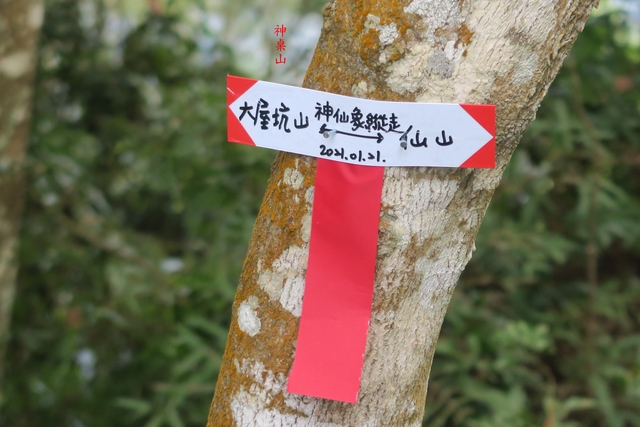 神桌山
大屋坑山
神仙象縱走
仙山
2021.01.21.